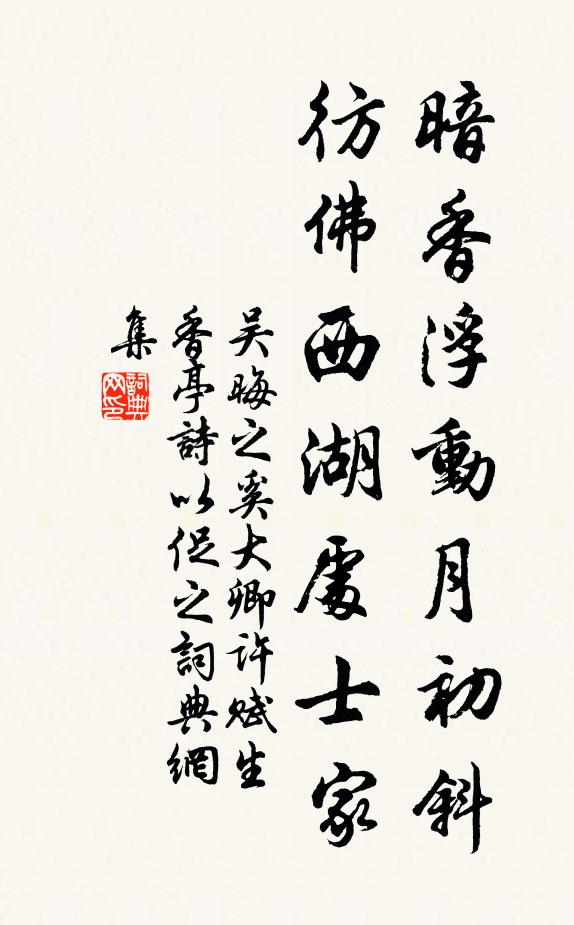 暗香浮動月初斜
彷佛西湖處士家
吴晦之奚大卿许赋生
香亭詩以促之詞典網
集
詞典
网印